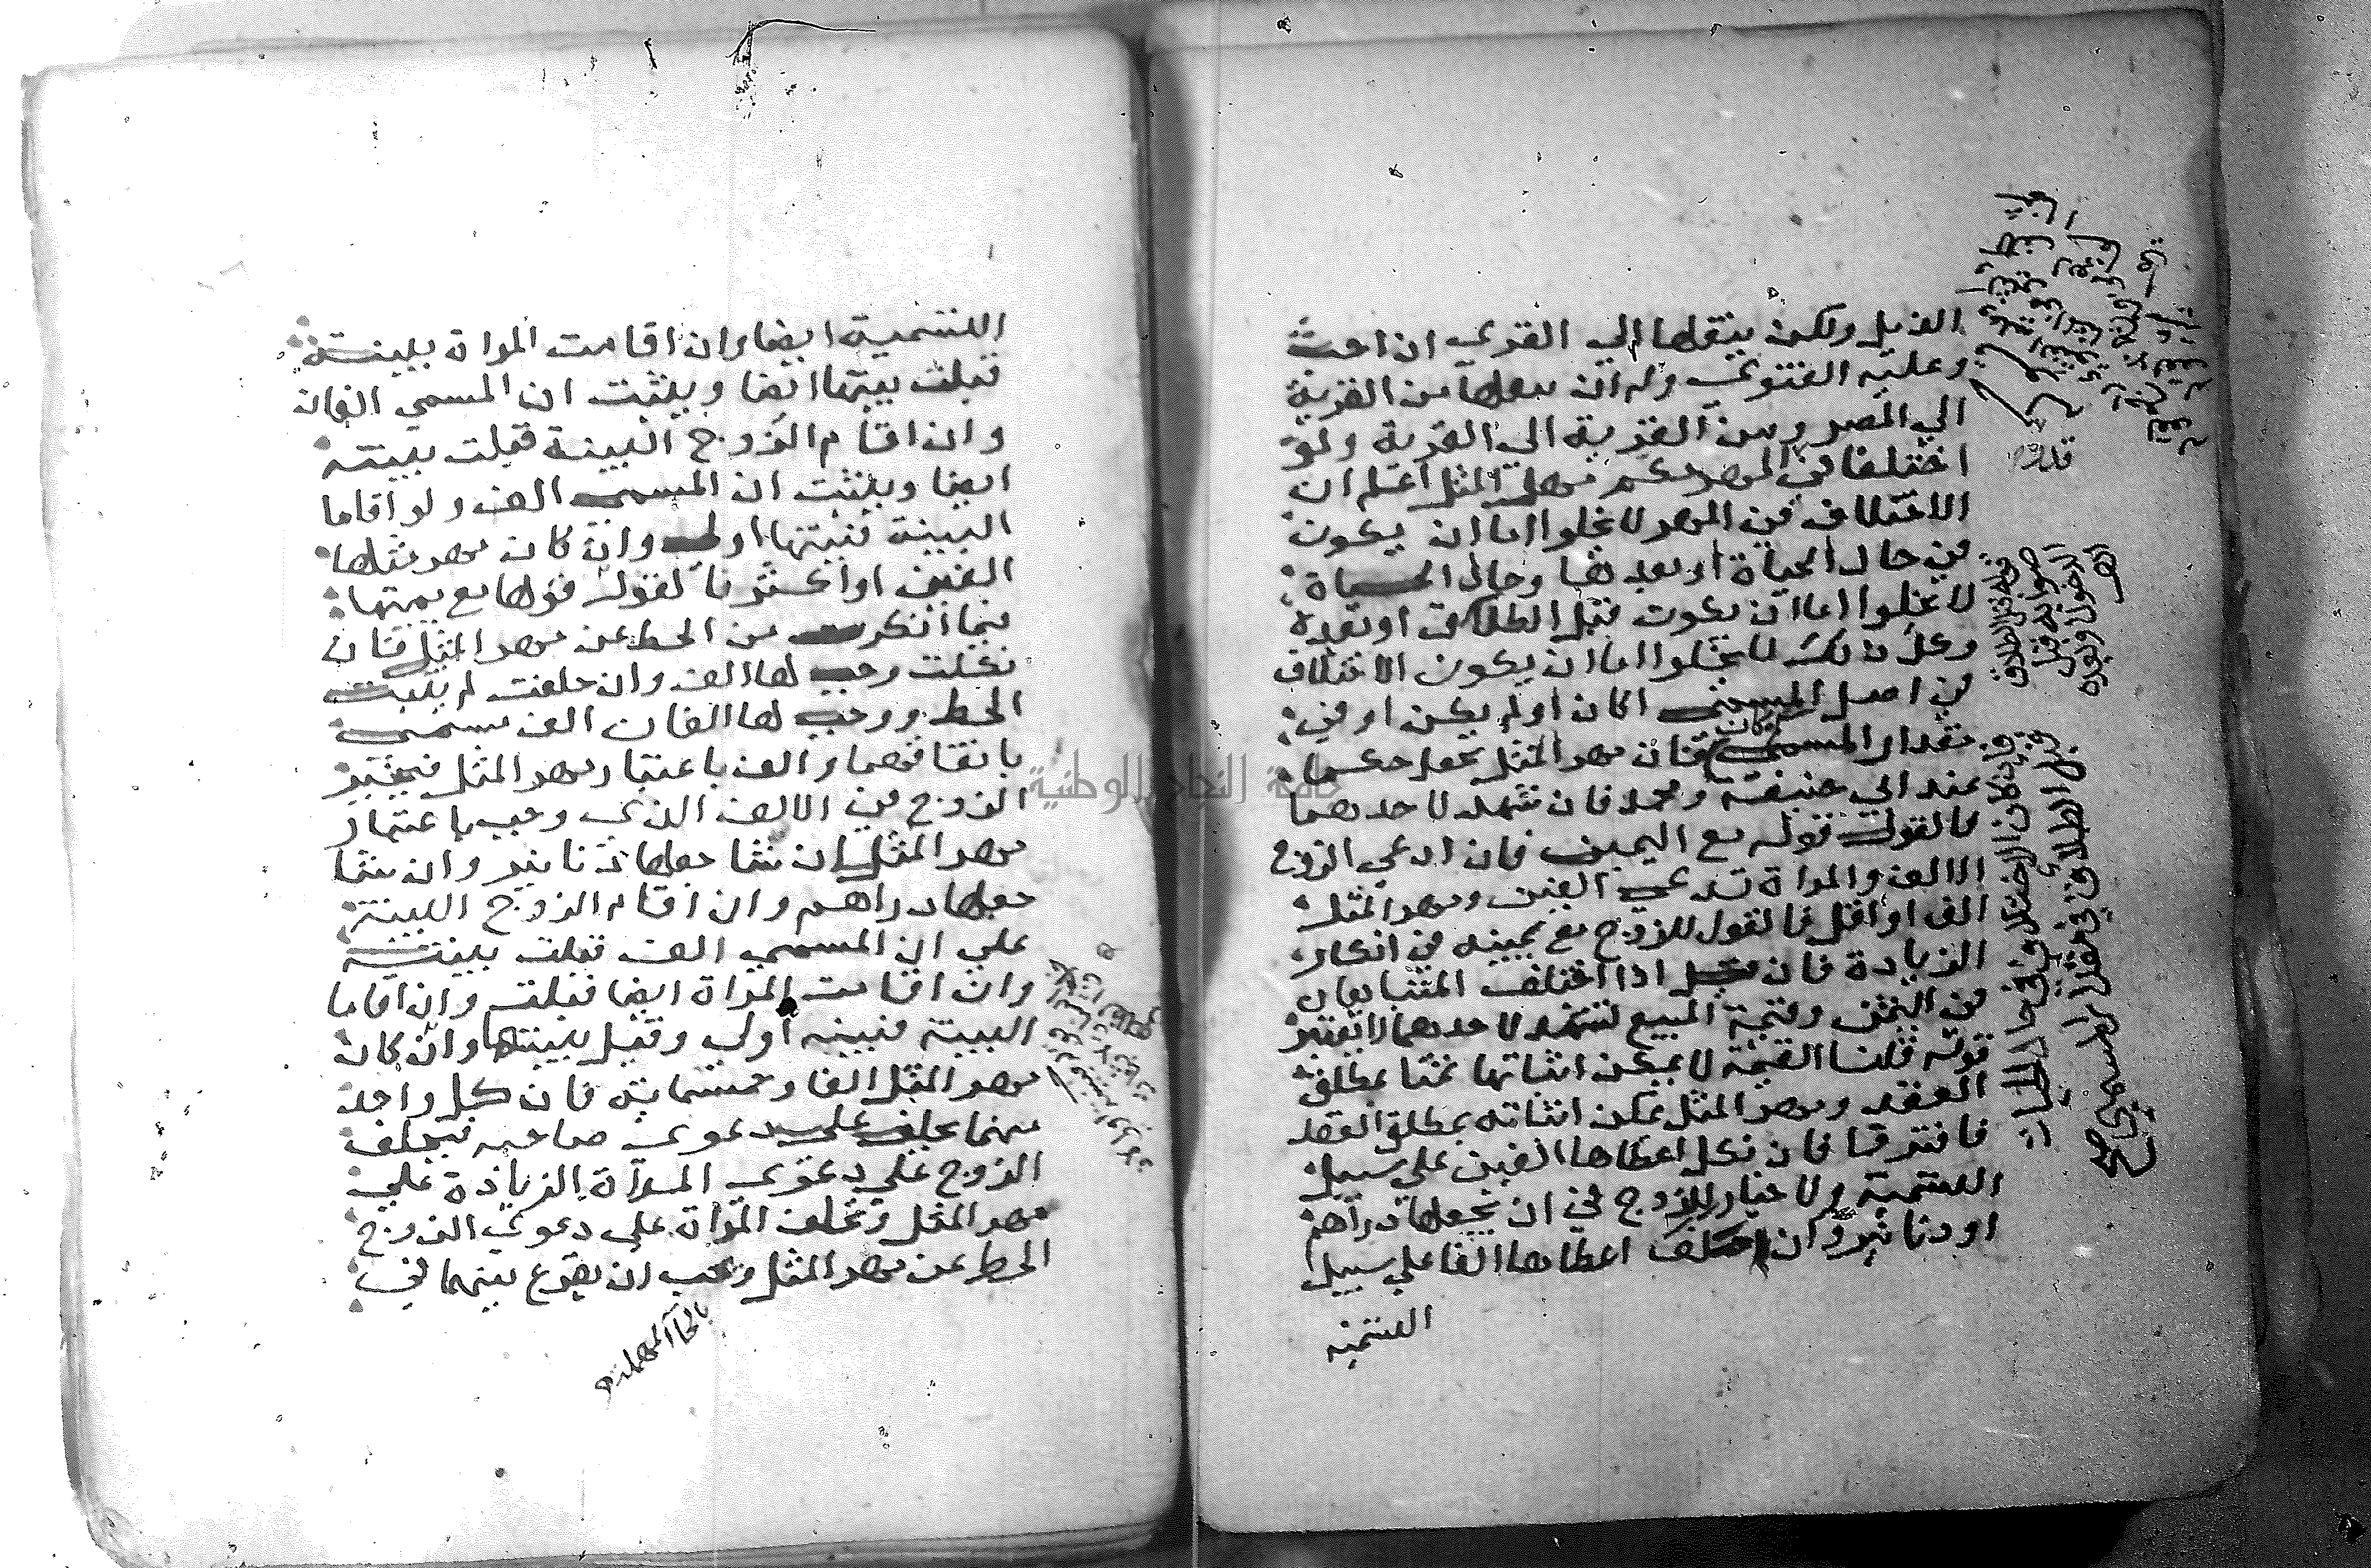 الغزل ولكن ينقلها الي القري ان احب
وعليه الفتوي وله ان ينقلها من القرية
الي المصر ومن القرية الي القرية ولو
اختلفا في المهر حكم مهر المثل اعلم ان
الاختلاف في المهر لا يخلوا اما ان يكون
في حال الحياة او بعدها وحال الحياة
لا يخلوا اما ان يكون قبل الطلاق او بعده
وكل ذلك لا يخلوا اما ان يكون الاختلاف
في اصل المسمي اكان او لم يكن او في
مقدار المسمي فان كان مهر المثل يجعل حكما
عند ابي حنيفة ومحمد فان شهد لاحدهما
فالقول قوله مع اليمين فان ادعي الزوج
الالف والمراة تدعي الفين ومهر المثل
الف او اقل فالقول للزوج مع يمينه في انكار
الزيادة فان قيل اذا اختلف المتبايعان
في الثمن وقيمة المبيع تشهد لاحدهما لا يعتبر
قوله قلنا القيمة لا يمكن اثباتها ثمنا بمطلق
العقد ومهر المثل يمكن اثباته بمطلق العقد
فافترقا فان نكل اعطاها الفين علي سبيل
التسمية ولا خيار للزوج في ان يجعلها دراهم
او دنانير وان حلف اعطاها الفا علي سبيل
التسمية
قبل الطلاق
صوابه قبل
الدخول وبعده
انتهى
التسمية ايضا وان اقامت المراة بينة
قبلت بينتها ايضا ويثبت ان المسمي الفان
وان اقام الزوج البينة قبلت بينته
ايضا ويثبت ان المسمي الف ولو اقاما
البينة فبينتها اولي وان كان مهر مثلها
الفين او اكثر فالقول قولها مع يمينها
فيما انكرت من الحط عن مهر المثل فان
نكلت وجب لها الف وان حلفت لم يثبت
الحط ووجب لها الفان الف مسمي
باتفاقهما والف باعتبار مهر المثل فيخير
الزوج في الالف الذي وجب باعتبار
مهر المثل ان شا جعلها دنانير وان شا
جعلها دراهم وان اقام الزوج البينة
علي ان المسمي الف قبلت بينته
وان اقامت المراة ايضا قبلت وان اقاما
البينة فبينه اولي وقيل بينتها وان كان
مهر المثل الفا وخمسماية فان كل واحد
منهما يحلف علي دعوي صاحبه فيحلف
الزوج علي دعوي المراة الزيادة علي
مهر المثل وتحلف المراة علي دعوي الزوج
الحط عن مهر المثل ويجب ان يقرع بينهما في
بالحا المهملة
جامعة النجاح الوطنية